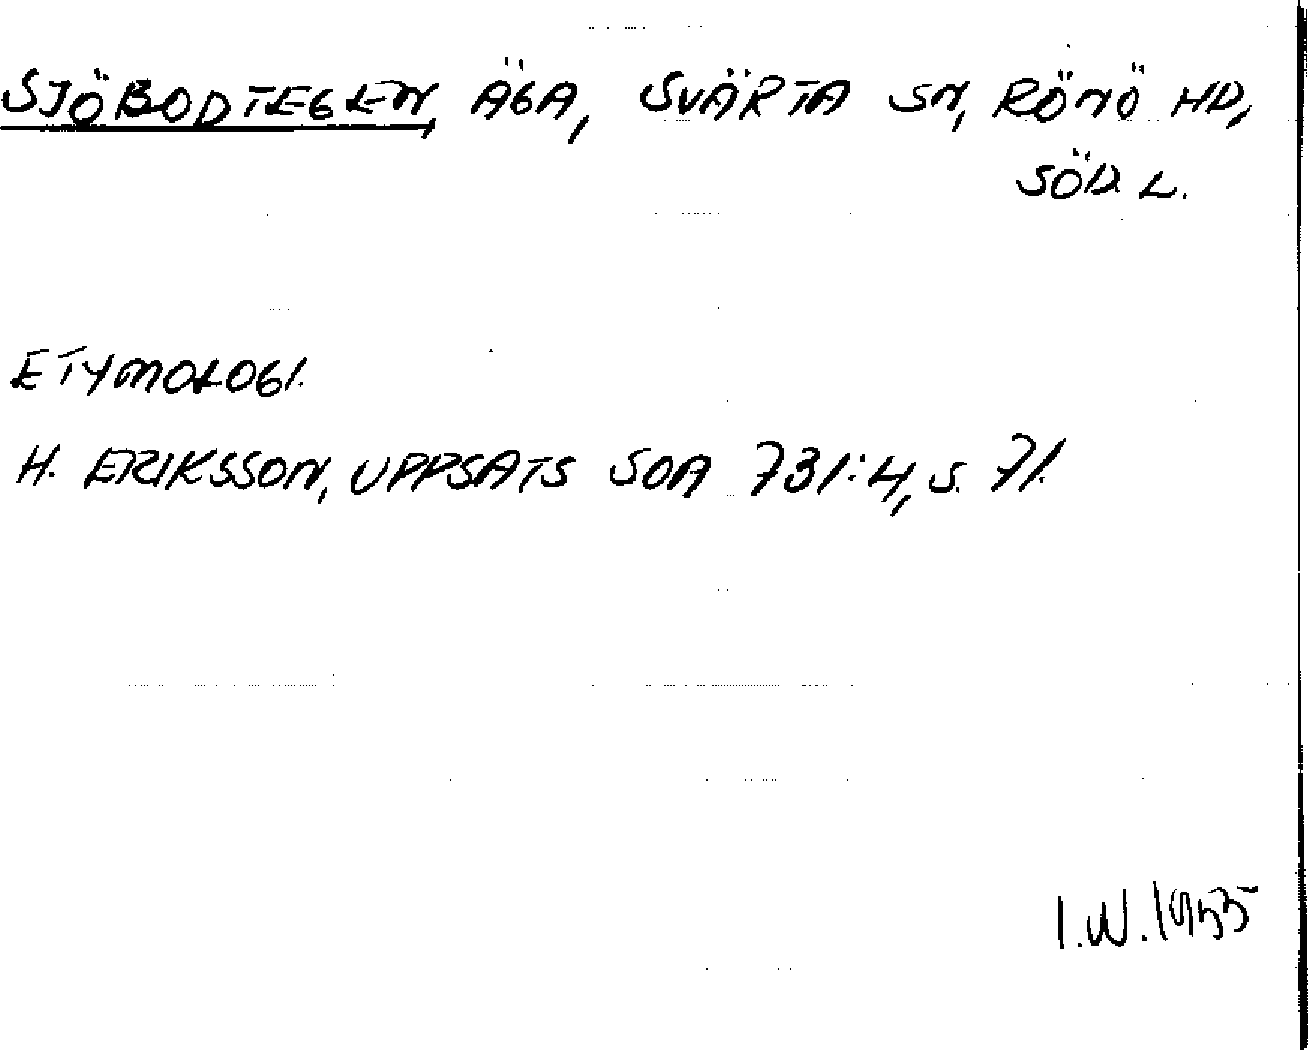 SJÖBODTEGEN, ÄGA, SVÄRTA SN, RÖNÖ HD,
SÖD. L.
ETYMOLOGI.
H. ERIKSSON, UPPSATS SOA 731:4, S. 71.
I.W. 1955